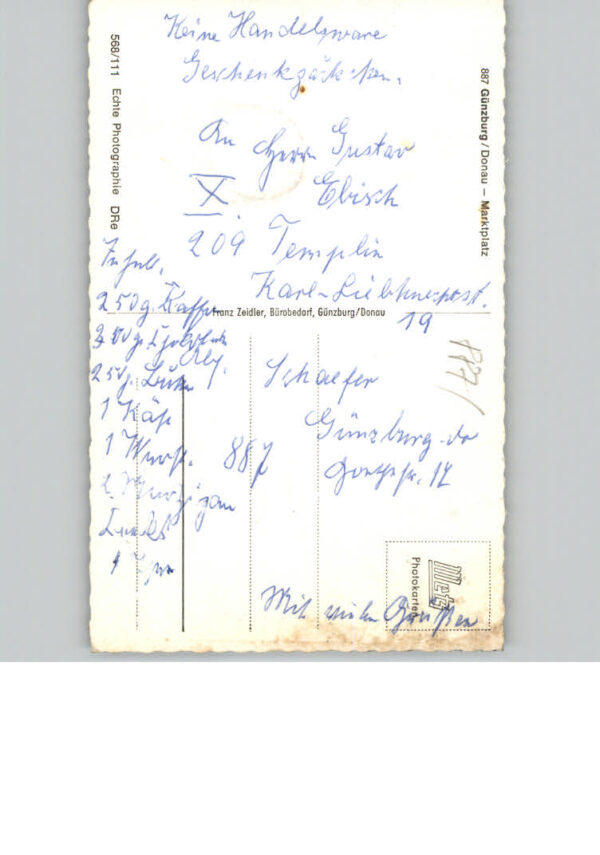 Keine Handelsware
Geschenkpäckchen.
An Herrn Gustav
X. Ebisch
209 Templin
Karl-Liebknechtst.
19
Inhalt.
250g. Kaffee
250g.
1 Käse
1 Wurst.
Schaefer
887 Günzburg-do
Goethestr. 12
Mit vielen Grüßen
Franz Zeidler, Bürobedarf, Günzburg/Donau
568/111 Echte Photographie DRe
887 Günzburg/Donau – Marktplatz
Metz
Photokarten